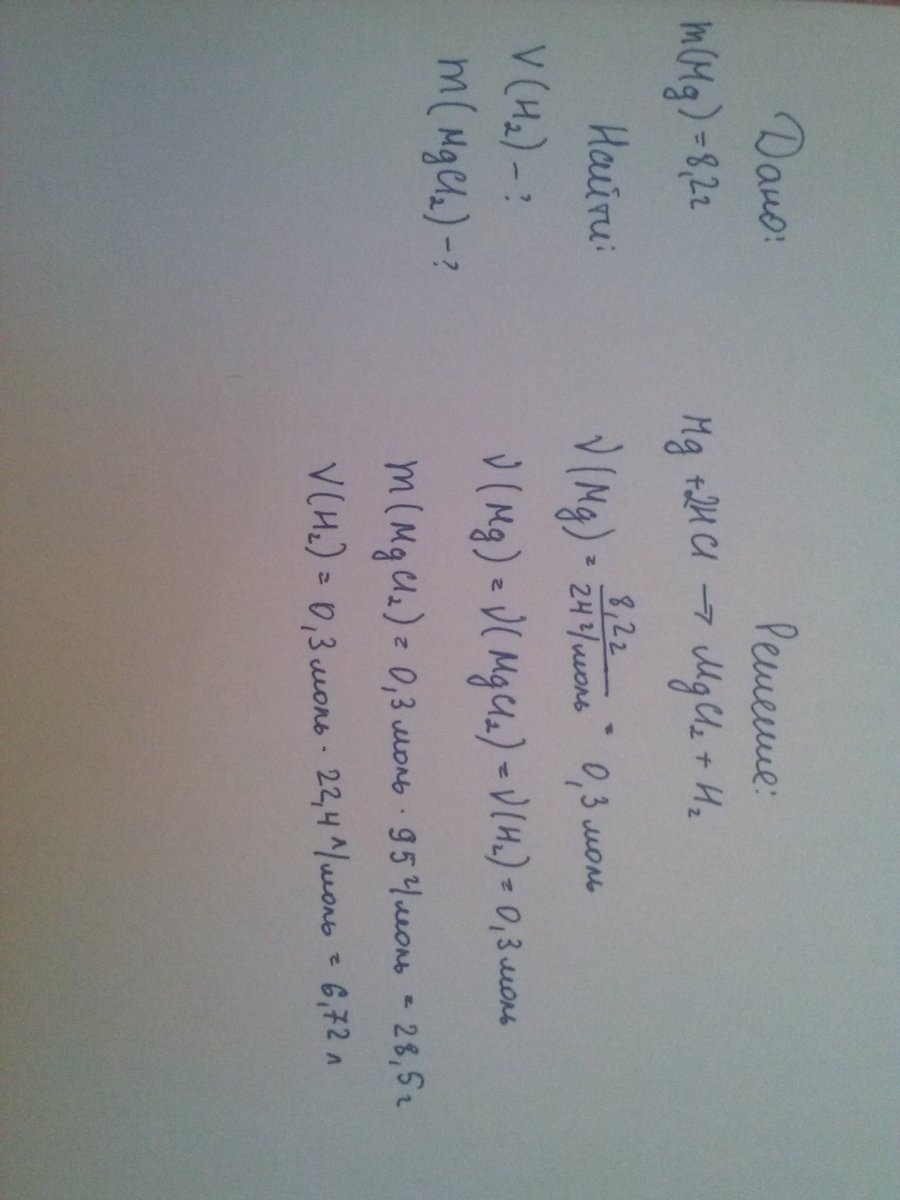 Дано:
m(Mg) = 8,2г
Найти:
V(H₂) - ?
m(MgCl₂) - ?
Решение:
Mg + 2HCl → MgCl₂ + H₂
ν(Mg) = 8,2г / 24 г/моль = 0,3 моль
ν(Mg) = ν(MgCl₂) = ν(H₂) = 0,3 моль
m(MgCl₂) = 0,3 моль · 95 г/моль = 28,5 г
V(H₂) = 0,3 моль · 22,4 л/моль = 6,72 л